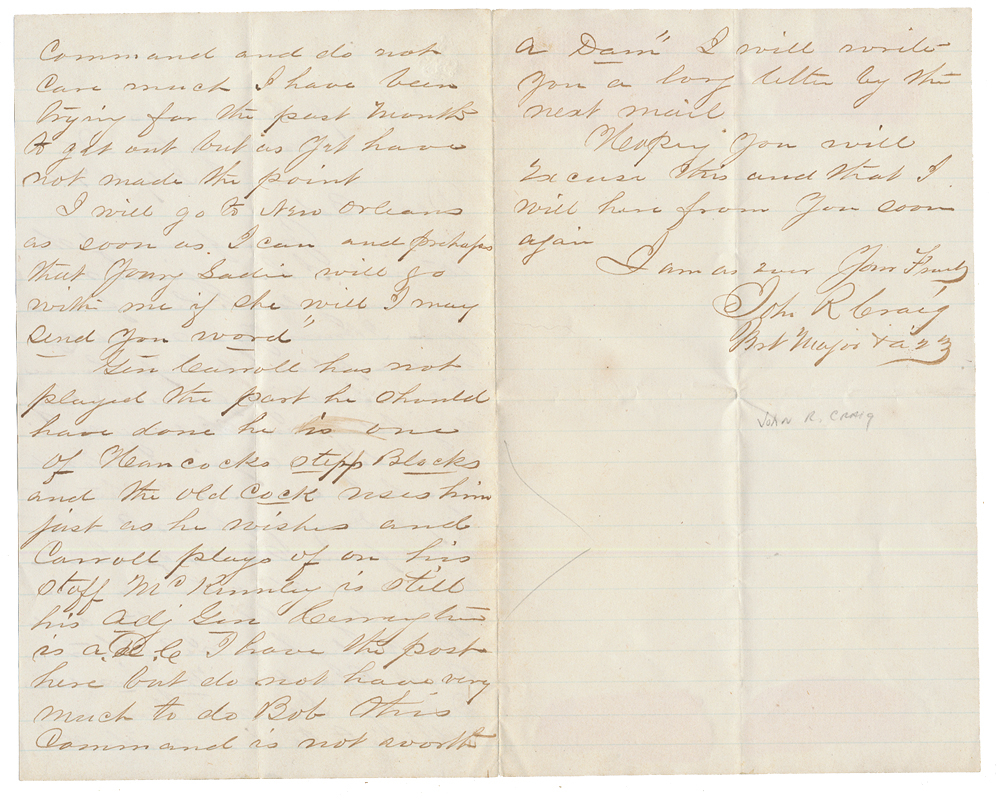 Command and do not
Care much I have been
trying for the past Month
to git out but as Yet have
not made the point
I will go to New Orleans
as soon as I can and prehaps
that Young Sadie will go
with me if she will I may
send you word"
Gen Carroll has not
played the part he should
have done he is one
of Hancocks stepp Blocks
and the old Cock uses him
just as he wishes and
Carroll plays of on his
staff McKinnley is still
his adj Gen
is a.D.C I have the post
here but do not have very
much to do Bob This
Command is not worth
a Dam" I will write
You a long letter by the
next mail
Hopeing You will
Excuse this and that I
will here from You soon
again
I am as ever Your Friend
John R Craig
Bvt Major &
JOHN R. CRAIG